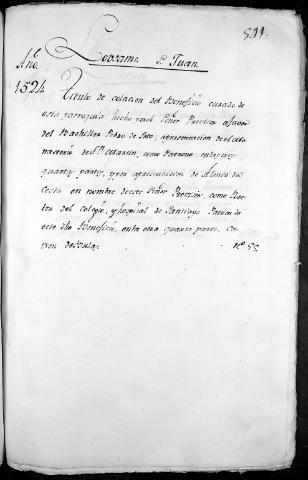 521.
Año
Lobrame Sn. Juan.
1524
Titulo de colacion del Beneficio curado de
esta parroquia hecho por el Señor Provisor afavor
del Bachiller Pedro de Soto, apresentacion del Mo
nasterio de Sn. Martin, como Patrono, en las tres
quartas partes, y por apresentacion de Alonso da
Costa en nombre de este Señor Provisor, como Rec
tor del Colegio, y hospital de Santiago Patron de
este dho Beneficio, en la otra quarta parte. Ca
xon de Bulas no. 55.